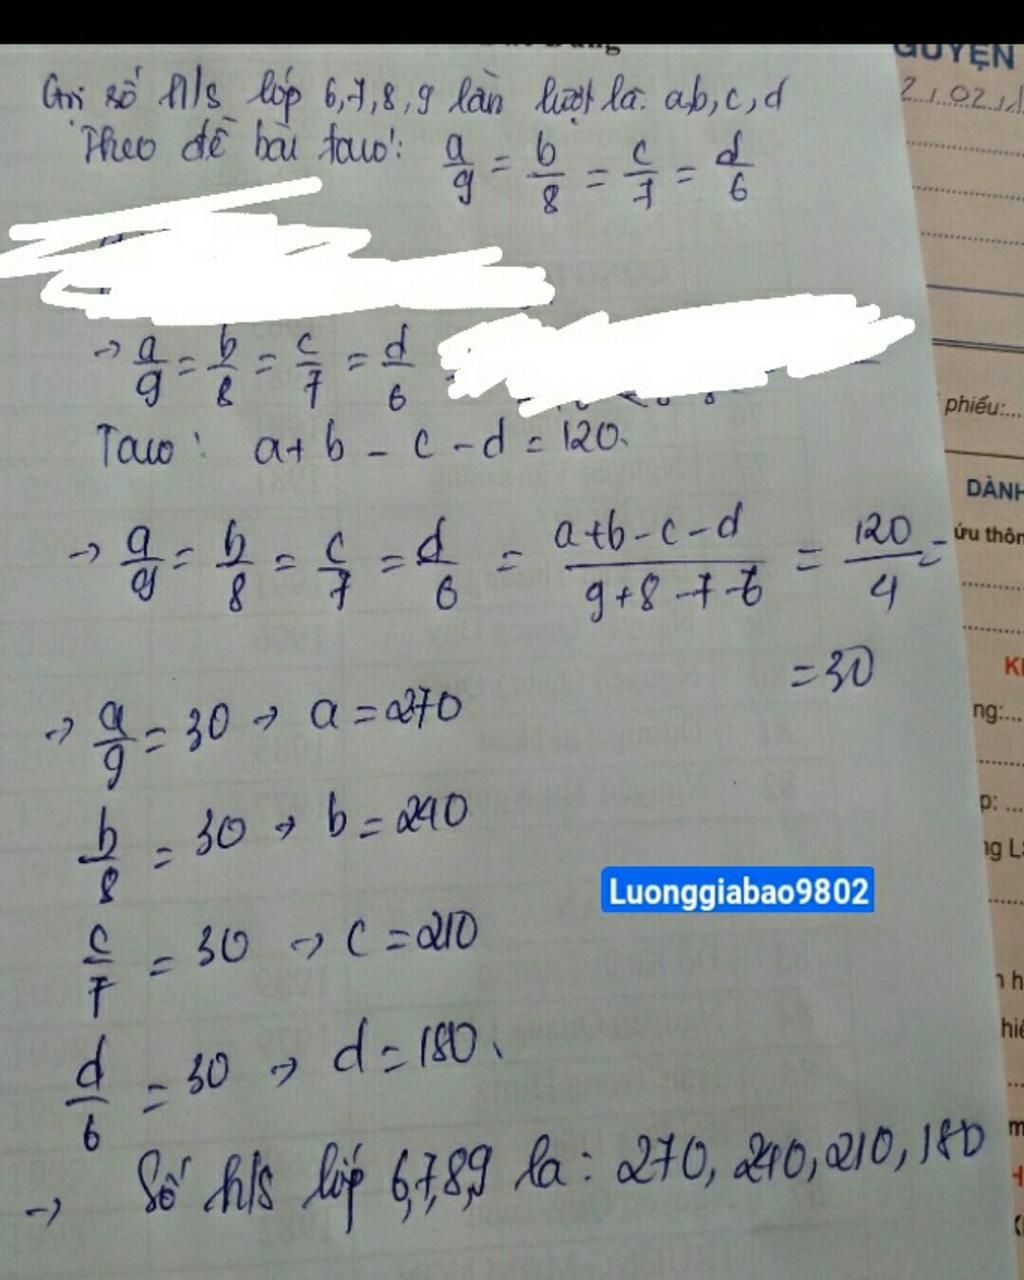 Gọi số h/s lớp 6,7,8,9 lần lượt là: a,b,c,d
Theo đề bài taco': a/9 = b/8 = c/7 = d/6
→ a/9 = b/8 = c/7 = d/6
Taco: a+b-c-d=120
→ a/9 = b/8 = c/7 = d/6 = a+b-c-d/9+8-7-6 = 120/4 =
=30
→ a/9 = 30 → a=270
b/8 = 30 → b=240
c/7 = 30 → c=210
d/6 = 30 → d=180
→ Số h/s lớp 6,7,8,9 la: 270, 240, 210, 180
Luonggiabao9802
GUYỆN
phiếu:...
DÀNH
ứu thôn
ng:...